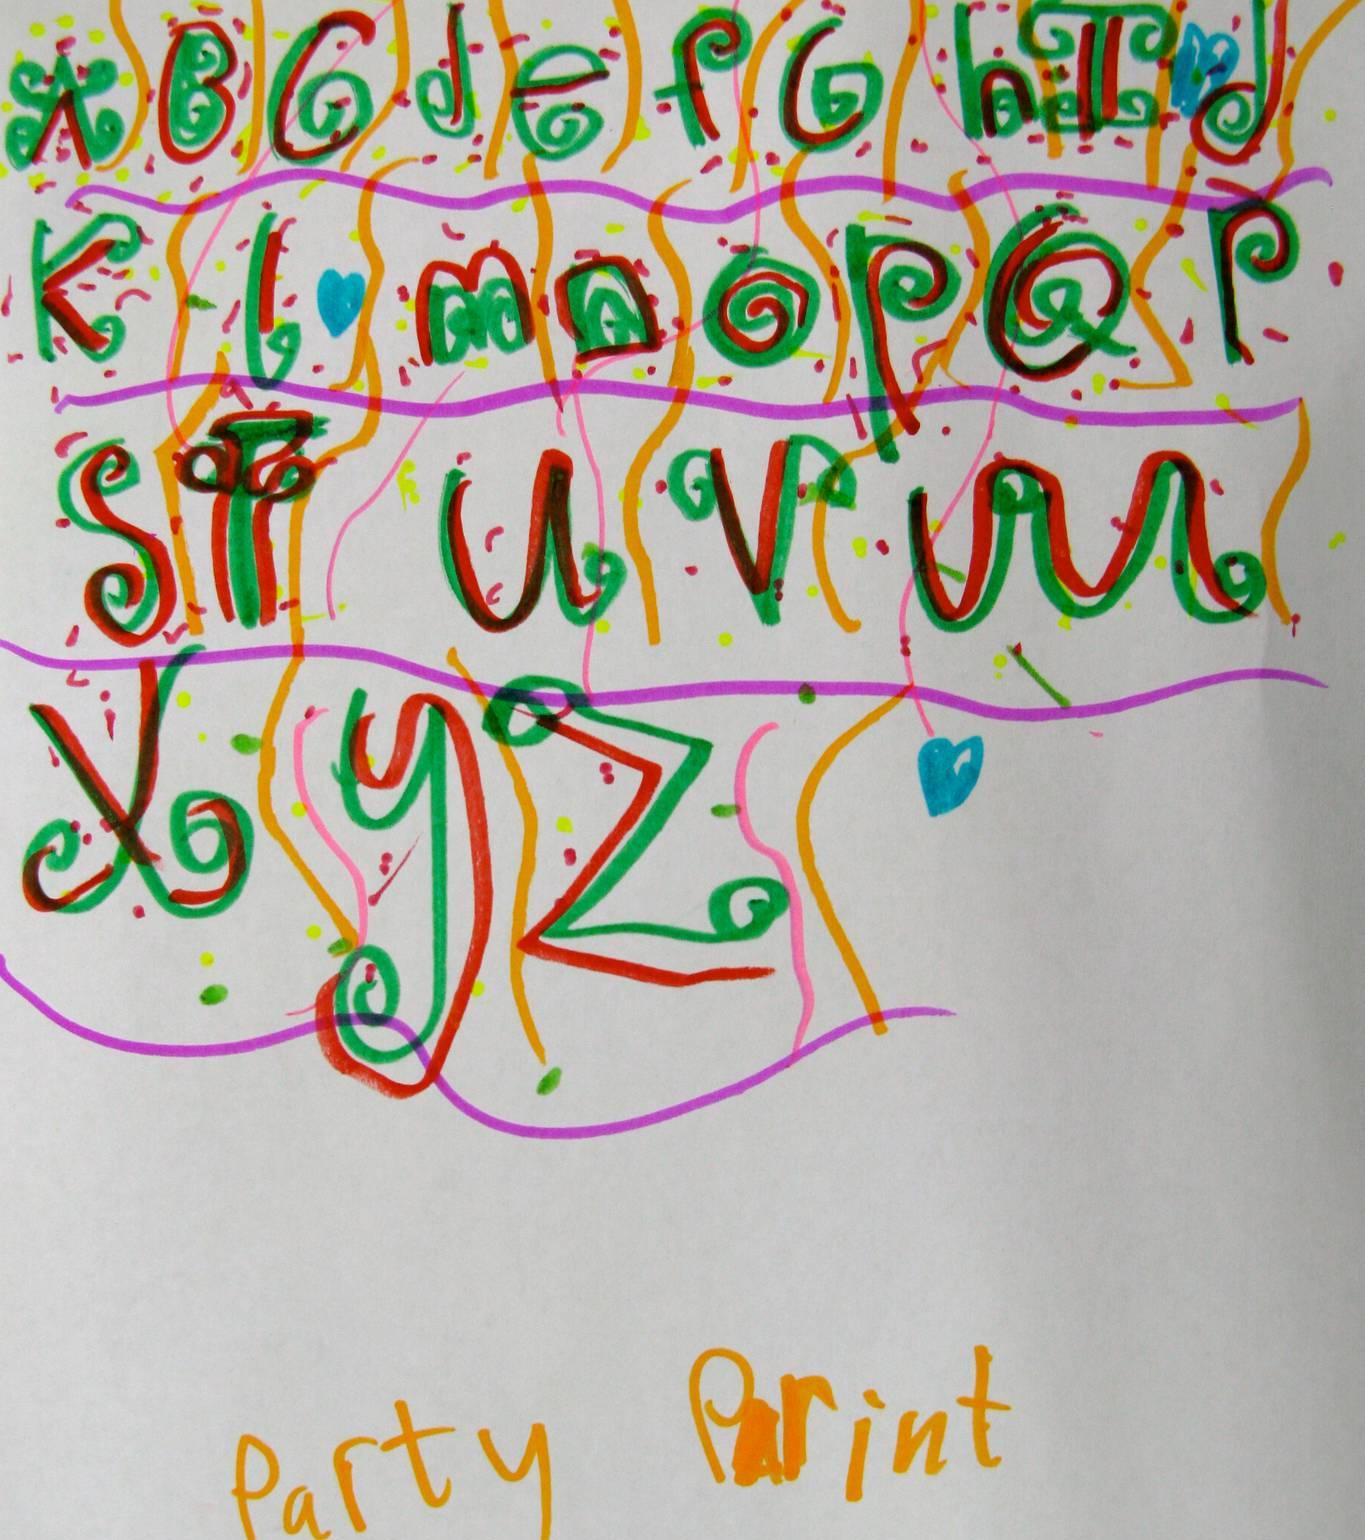 A B C d e f G h I J
K l m n o p Q r
S T u v w
X y Z
Party Print